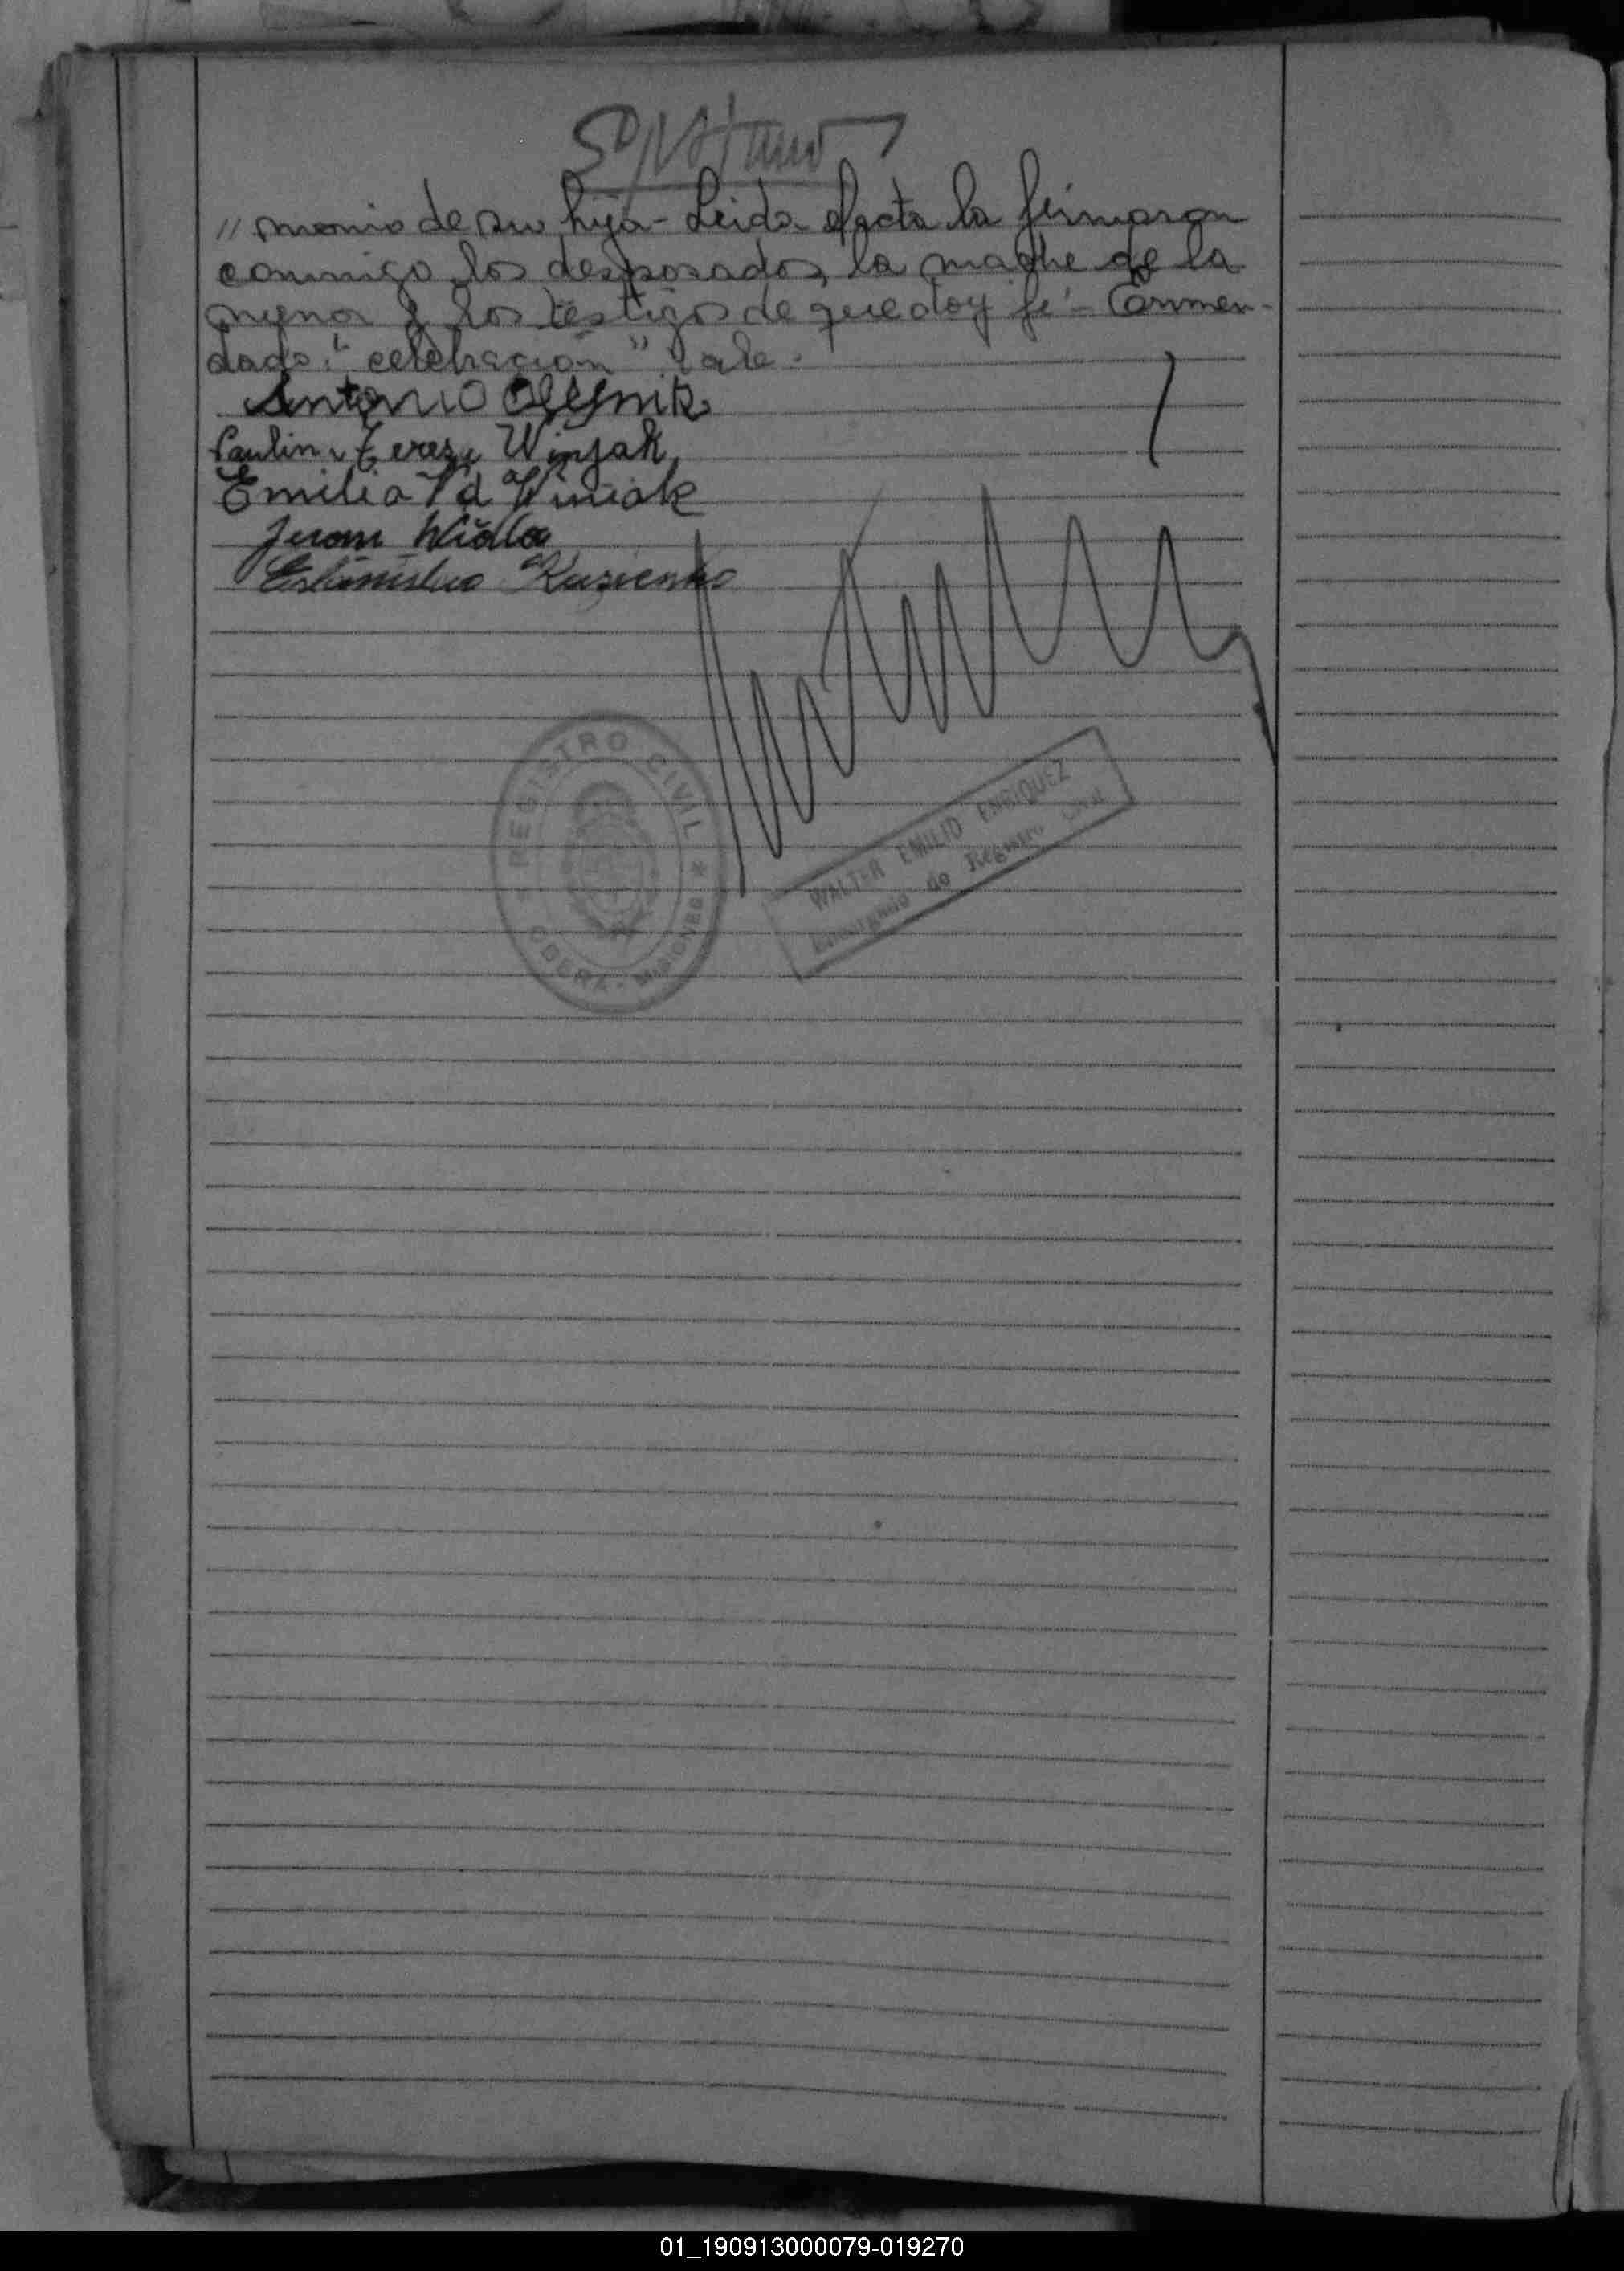 // monio de su hija - Leida el acta la firmaron
conmigo los desposados, la madre de la
menor y los testigos de que doy fé - Enmen-
dado: "celebracion" Vale.
Antonio Olejnik
Paulina Teresa Winjak
Emilia Vd Winiak
Estanislao Kuzienko
REGISTRO CIVIL
OBERA - MISIONES
WALTER EMILIO ENRIQUEZ
Encargado de Registro Civil
01_190913000079-019270